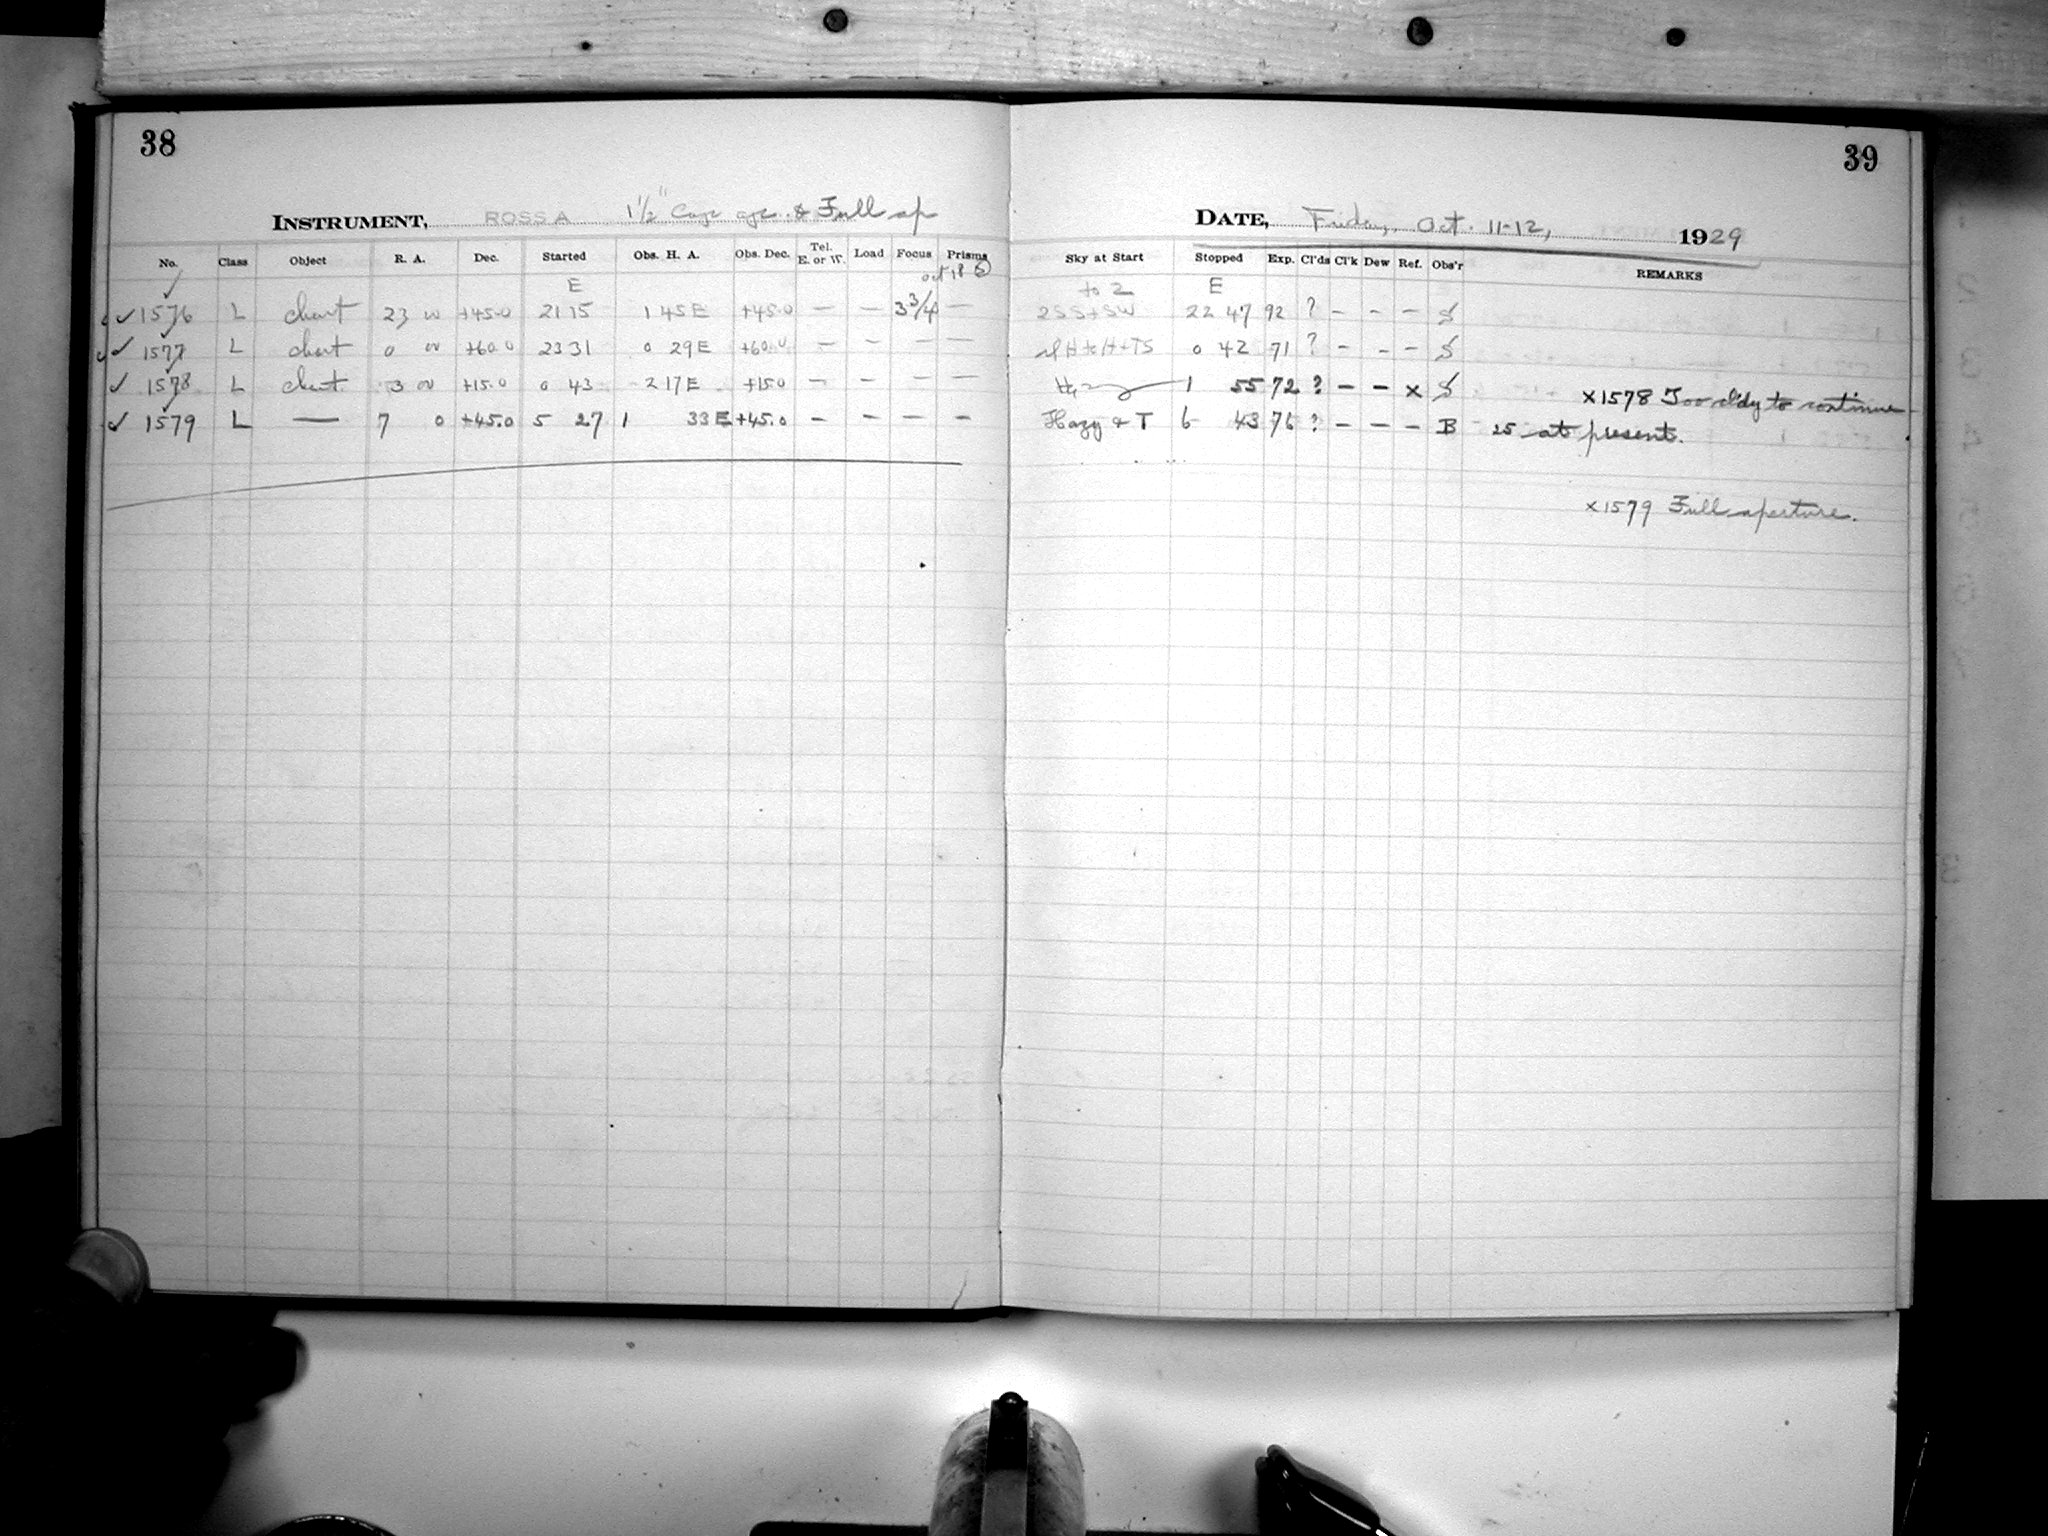 38
39
INSTRUMENT, ROSS A 1½" Cage ap. & Full ap
DATE, Friday, Oct. 11-12, 1929
No. Class Object R. A. Dec. Started Obs. H. A. Obs. Dec. Tel. E. or W. Load Focus Prisms
Sky at Start Stopped Exp. Cl'ds Cl'k Dew Ref. Obs'r REMARKS
E
to 2 E
✓ 1576 L chart 23 00 +45.0 21 15 1 45 E +45.0 — — 3 3/4 —
2 S S + SW 22 47 92 ? – – – S
✓ 1577 L chart 0 00 +60.0 23 31 0 29 E +60.0 — — — —
0 42 71 ? – – – S
✓ 1578 L chart 3 00 +15.0 0 43 2 17 E +15.0 — — — —
Hazy 1 55 72 ? – – x S x1578 Too cl'dy to continue
✓ 1579 L — 7 0 +45.0 5 27 1 33 E +45.0 – – – –
Hazy & T 6 43 76 ? – – – B 25 at present.
x1579 Full aperture.